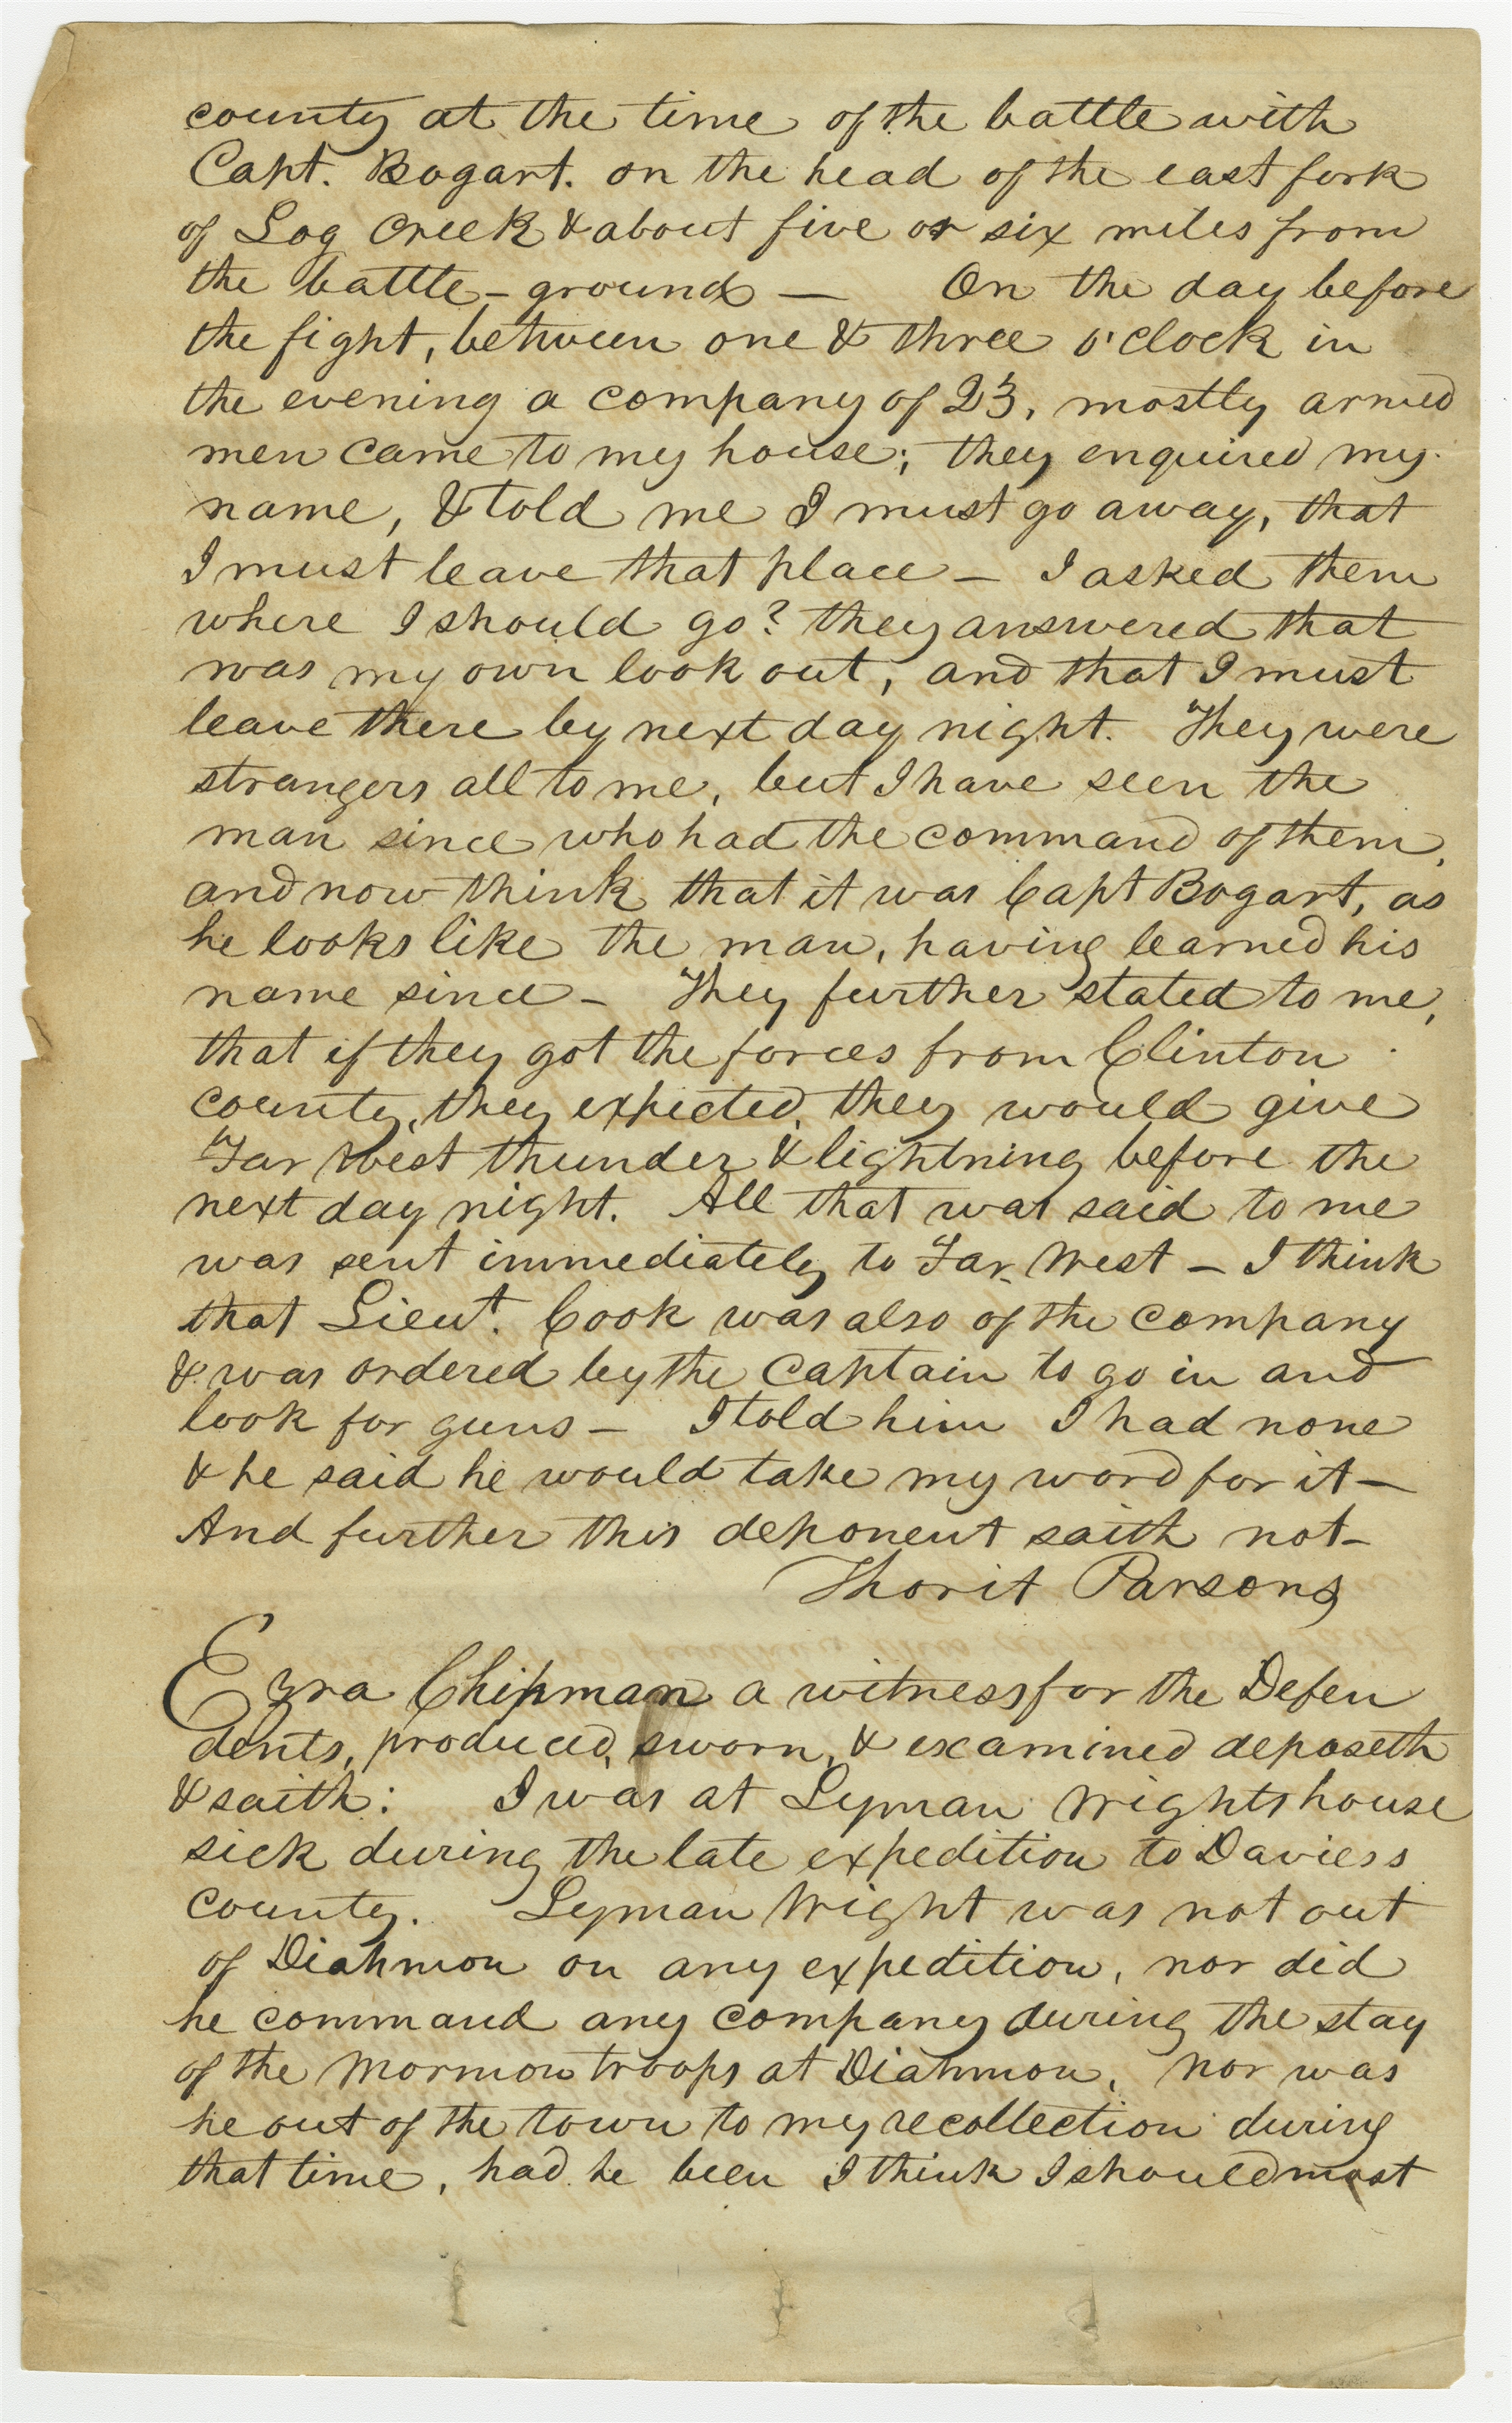 county at the time of the battle with
Capt. Bogart. on the head of the east fork
of Log Creek & about five or six miles from
the battle-ground — On the day before
the fight, between one & three o'clock in
the evening a company of 23, mostly armed
men came to my house; they enquired my
name, & told me I must go away, that
I must leave that place — I asked them
where I should go? they answered that
was my own look out, and that I must
leave there by next day night. They were
strangers all to me, but I have seen the
man since who had the command of them,
and now think that it was Capt Bogart, as
he looks like the man, having learned his
name since — They further stated to me,
that if they got the forces from Clinton
county, they expected, they would give
Far West thunder & lightning before the
next day night. All that wat said to me
was sent immediately to Far West — I think
that Lieut. Cook was also of the company
& was ordered by the Captain to go in and
look for guns — I told him I had none
& he said he would take my word for it —
And further this deponent saith not —
Thorit Parsons
Ezra Chipman a witness for the Defen
dents, produced, sworn, & examined deposeth
& saith: I was at Lyman Wrights house
sick during the late expedition to Daviess
county. Lyman Wright was not out
of Diahmon on any expedition, nor did
he command any company during the stay
of the Mormon troops at Diahmon, nor was
he out of the town to my recollection during
that time, had he been I think I should most